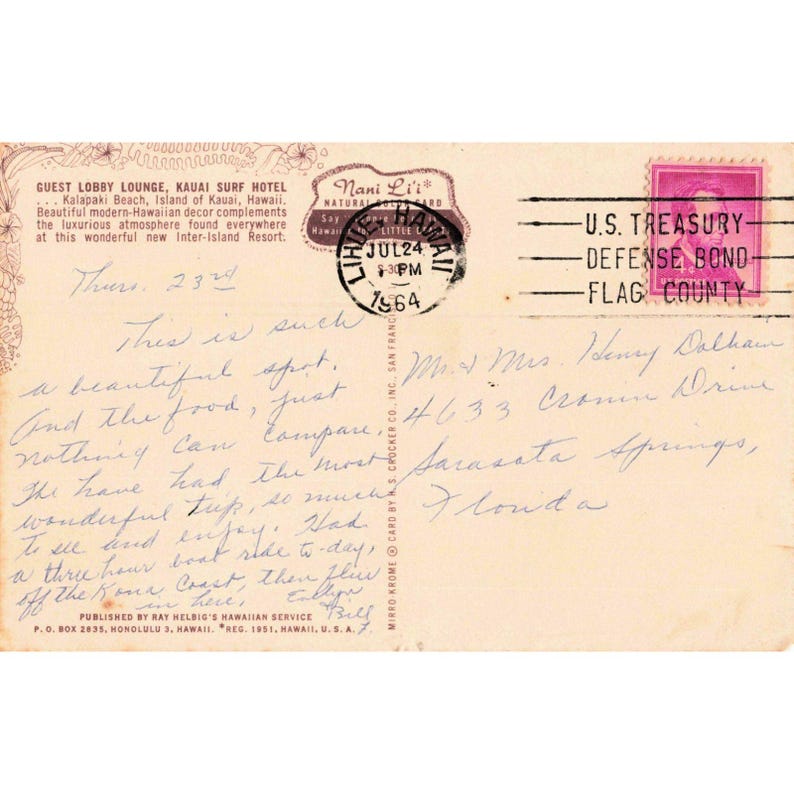 GUEST LOBBY LOUNGE, KAUAI SURF HOTEL
. . . Kalapaki Beach, Island of Kauai, Hawaii.
Beautiful modern-Hawaiian decor complements
the luxurious atmosphere found everywhere
at this wonderful new Inter-Island Resort.
Nani Li'i*
NATURAL COLOR CARD
LIHUE, HAWAII
JUL 24
PM
1964
U.S. TREASURY
DEFENSE BOND
FLAG COUNTY
4¢
Thurs. 23rd
This is such
a beautiful spot.
And the food, just
nothing can compare.
We have had the most
wonderful trip, so much
to see and enjoy. Had
a three hour boat ride to-day,
off the Kona Coast, then flew
in here. Evelyn
Bill
Mr. & Mrs. Henry
4633 Cronin Drive
Sarasota Springs,
Florida
MIRRO-KROME ® CARD BY H. S. CROCKER CO., INC., SAN
PUBLISHED BY RAY HELBIG'S HAWAIIAN SERVICE
P. O. BOX 2835, HONOLULU 3, HAWAII. *REG. 1951, HAWAII, U. S. A.